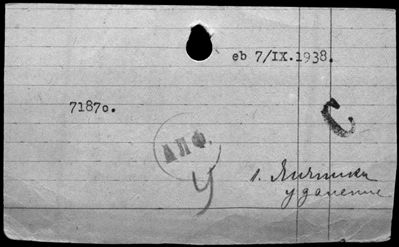 eb 7/IX.1938.
7187o.
С
АПФ.
У
1. Яички
удаление